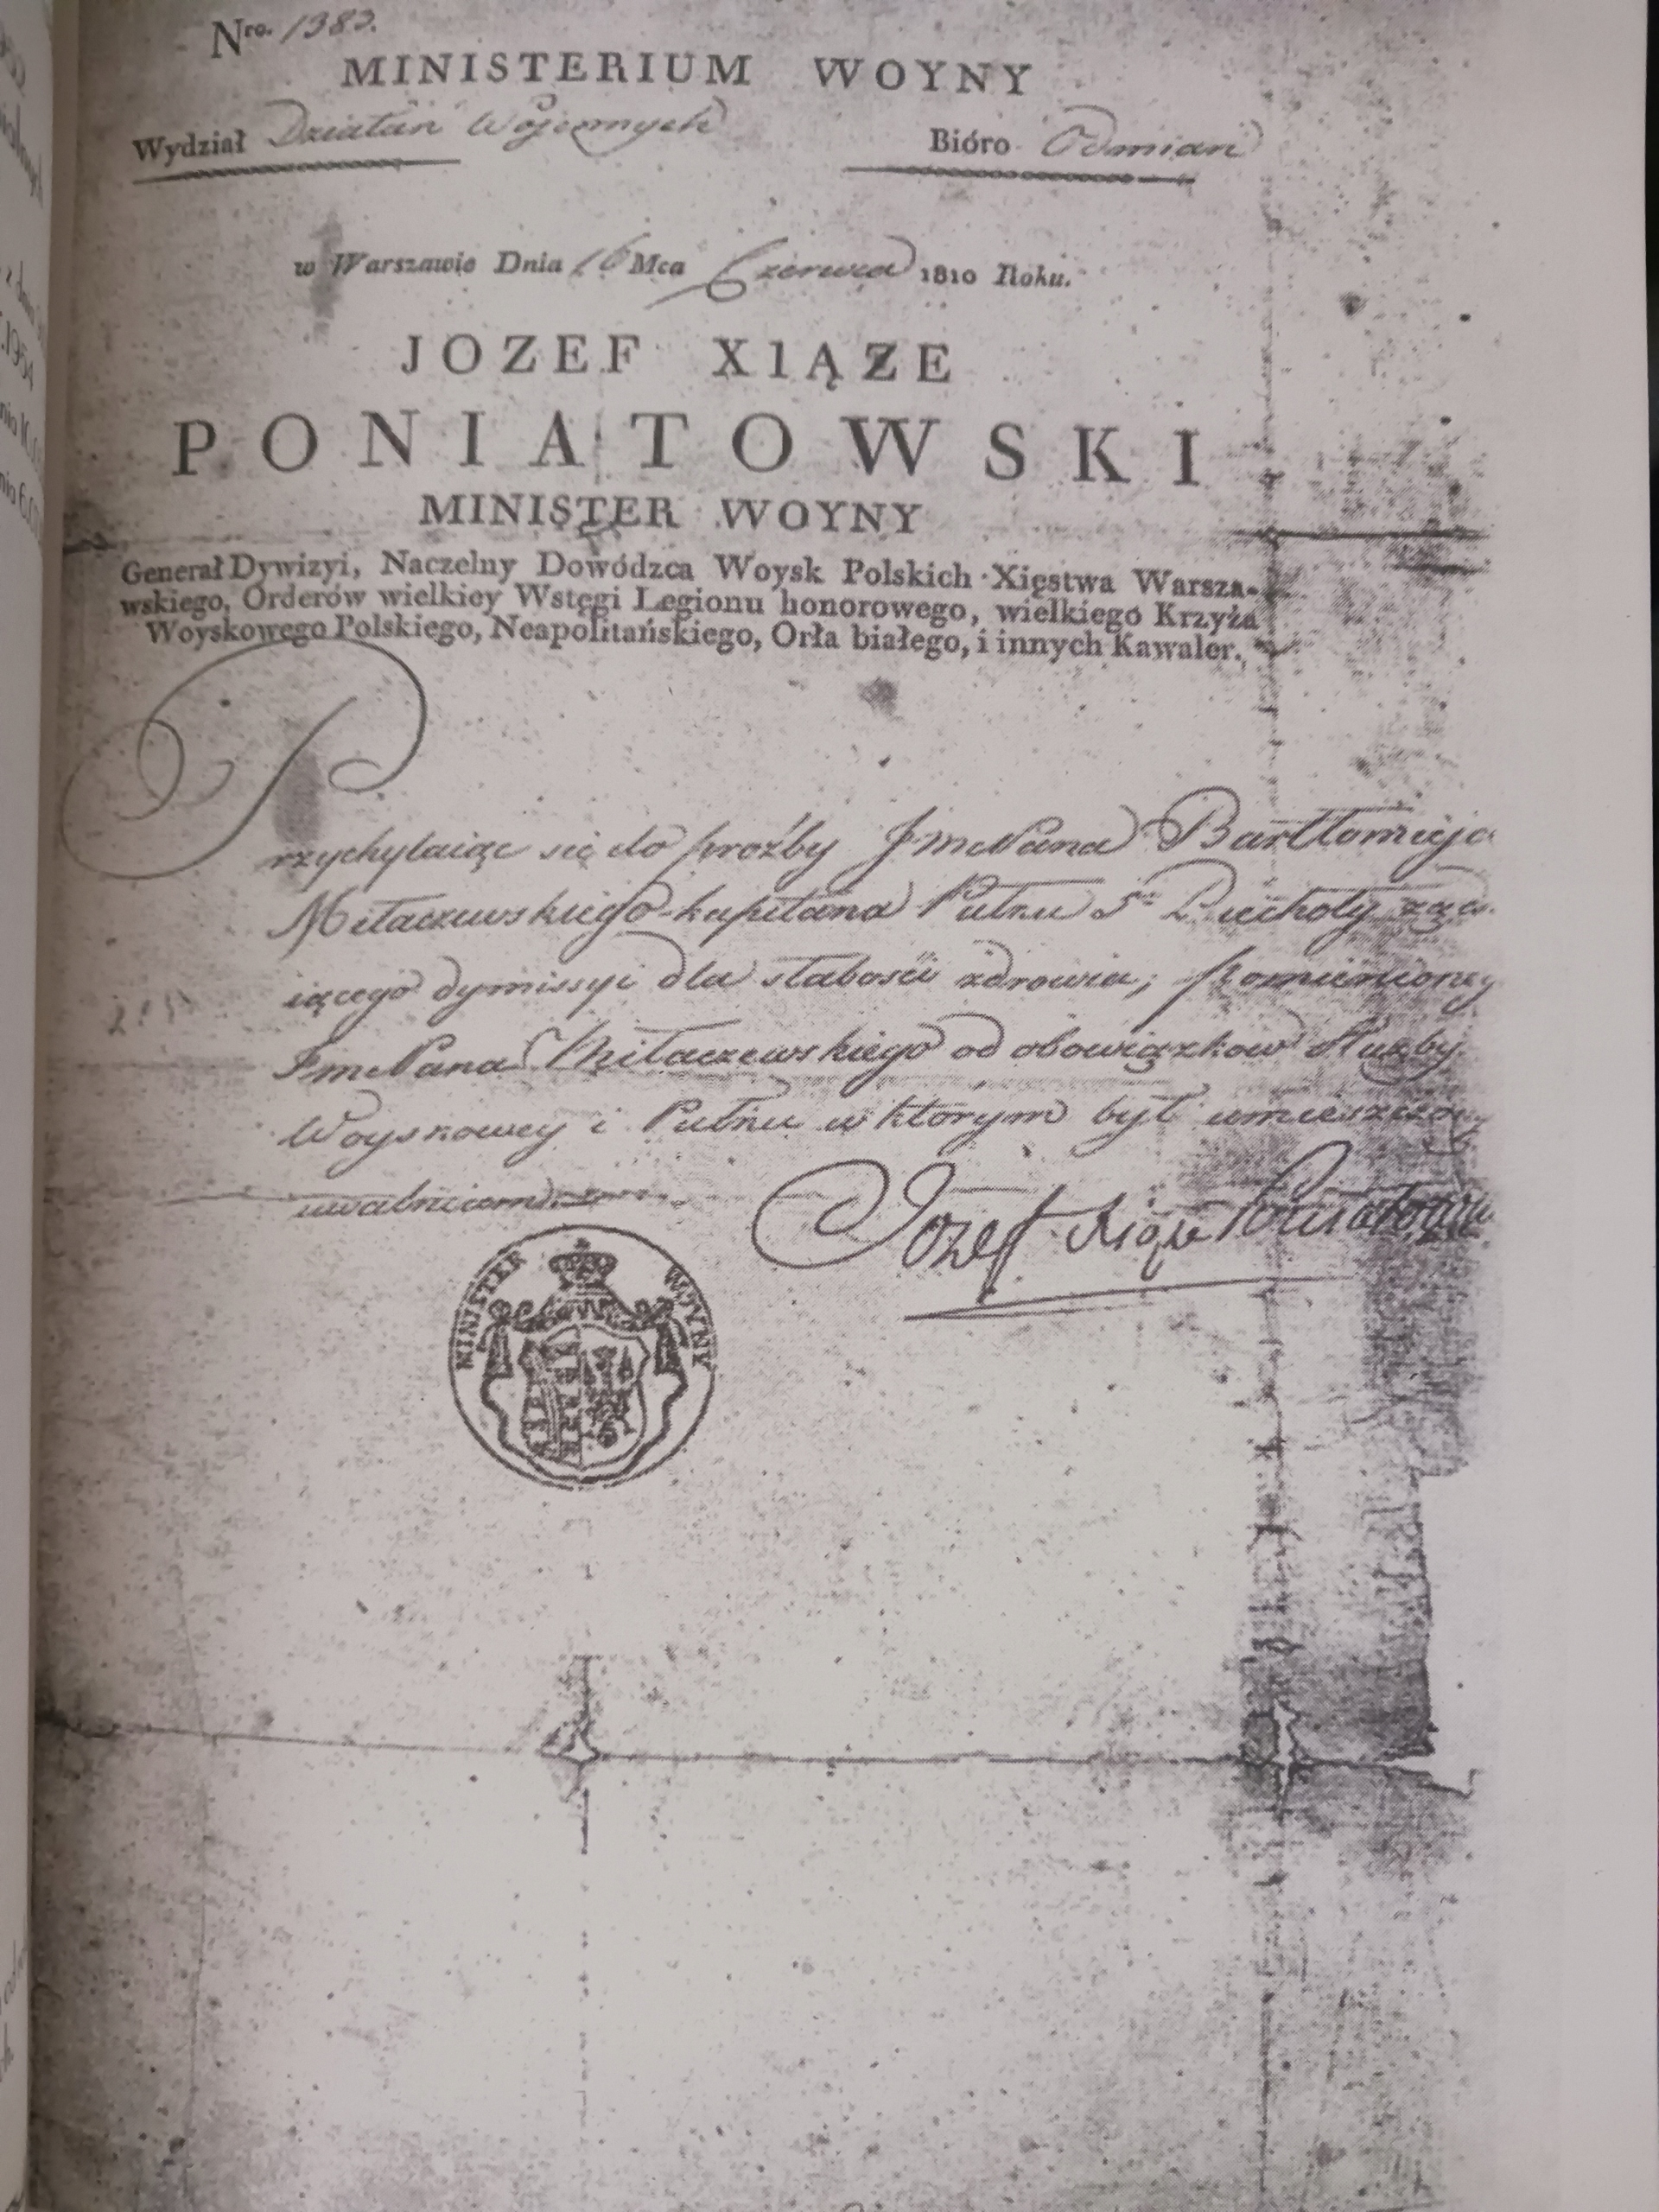 Nro. 1383.
MINISTERIUM WOYNY
Wydział Działań Wojennych Bióro Odmian
w Warszawie Dnia 16 Mca Czerwca 1810 Roku.
JOZEF XIĄZE
PONIATOWSKI
MINISTER WOYNY
Generał Dywizyi, Naczelny Dowódzca Woysk Polskich Xięstwa Warsza-
wskiego, Orderów wielkiey Wstęgi Legionu honorowego, wielkiego Krzyża
Woyskowego Polskiego, Neapolitańskiego, Orła białego, i innych Kawaler.
Przychylaiąc się do proźby JmcPana Bartłomieja
Miłaczewskiego kapitana Pułku 5º Piechoty żąda-
iącego dymissyi dla słabości zdrowia; pomienioney
JmcPana Miłaczewskiego od obowiązkow Służby
Woyskowey i Pułku w ktorym był umieszczony
uwalniam.
Jozef Xiąże Poniatowski
MINISTER WOYNY